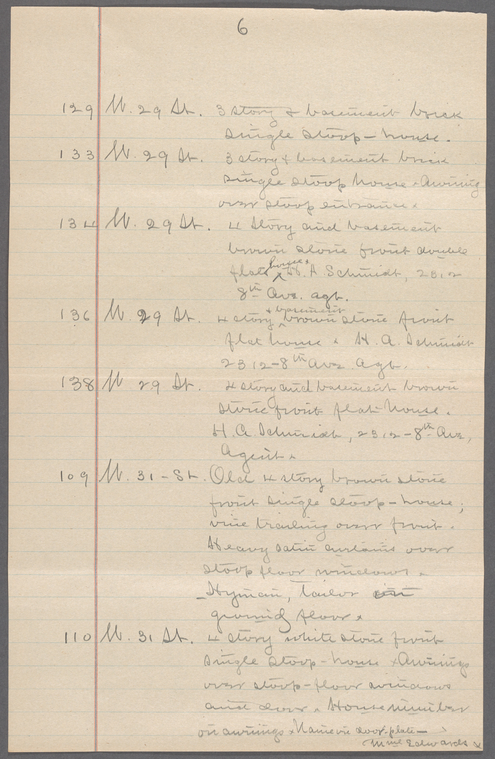 6
129 W. 29 St. 3 story & basement brick
single stoop-house.
133 W. 29 St. 3 story & basement brick
single stoop house. Awning
over stoop entrance.
134 W. 29 St. 4 story and basement
brown stone front double
flat house. H. A Schmidt, 2312
8th Ave. agt.
136 W. 29 St. 4 story & basement brown stone front
flat house. H. A. Schmidt
2312-8th Ave. Agt.
138 W 29 St. 4 story and basement brown
stone front flat-house.
H. A. Schmidt, 2312-8th Ave,
Agent.
109 W. 31-St. Old 4 story brown stone
front single stoop-house;
vine trailing over front.
Heavy satin curtains over
stoop floor windows.
Hyman, Tailor
ground floor.
110 W. 31 St. 4 story white stone front
single stoop-house. Awnings
over stoop-floor windows
and door. House number
on awnings. Name on door-plate-
Mme Edwards